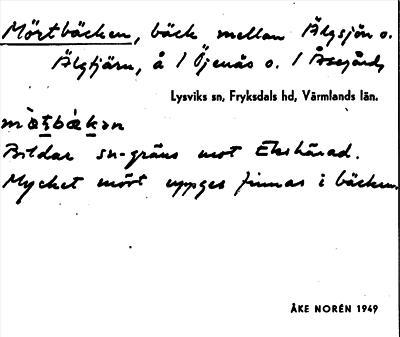 Mörtbäcken, bäck mellan Älgsjön o.
Älgtjärn, å 1 Öjenäs o. 1 
Lysviks sn, Fryksdals hd, Värmlands län.
Bildar sn-gräns mot Ekshärad.
Mycket mört uppges finnas i bäcken.
ÅKE NORÉN 1949